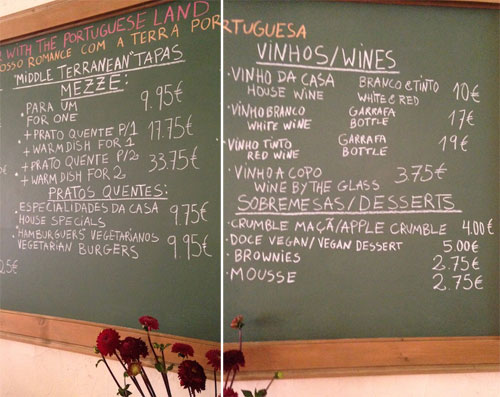 WITH THE PORTUGUESE LAND
OSSO ROMANCE COM A TERRA POR
"MIDDLE TERRANEAN" TAPAS
MEZZE:
• PARA UM 9.95€
FOR ONE
+ PRATO QUENTE P/1 17.75€
+ WARM DISH FOR 1
+ PRATO QUENTE P/2 33.75€
+ WARM DISH FOR 2
PRATOS QUENTES:
• ESPECIALIDADES DA CASA 9.75€
HOUSE SPECIALS
• HAMBURGUERS VEGETARIANOS 9.95€
VEGETARIAN BURGERS
25€
RTUGUESA
VINHOS/WINES
• VINHO DA CASA BRANCO e TINTO 10€
HOUSE WINE WHITE & RED
• VINHO BRANCO GARRAFA 17€
WHITE WINE BOTTLE
• VINHO TINTO GARRAFA 19€
RED WINE BOTTLE
• VINHO A COPO 3.75€
WINE BY THE GLASS
SOBREMESAS/DESSERTS
• CRUMBLE MAÇÃ/APPLE CRUMBLE 4.00€
• DOCE VEGAN/VEGAN DESSERT 5.00€
• BROWNIES 2.75€
• MOUSSE 2.75€